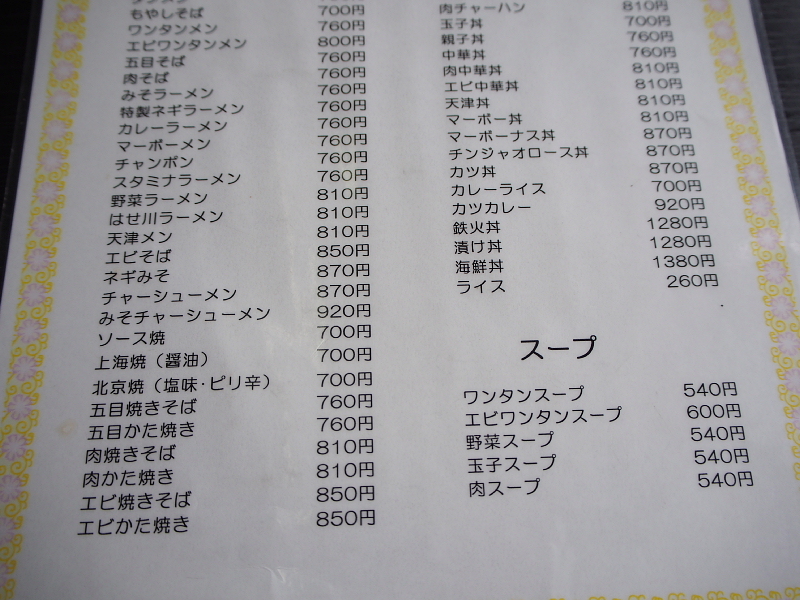 もやしそば 700円
ワンタンメン 760円
エビワンタンメン 800円
五目そば 760円
肉そば 760円
みそラーメン 760円
特製ネギラーメン 760円
カレーラーメン 760円
マーボーメン 760円
チャンポン 760円
スタミナラーメン 760円
野菜ラーメン 810円
はせ川ラーメン 810円
天津メン 810円
エビそば 850円
ネギみそ 870円
チャーシューメン 870円
みそチャーシューメン 920円
ソース焼 700円
上海焼（醤油） 700円
北京焼（塩味･ピリ辛） 700円
五目焼きそば 760円
五目かた焼き 760円
肉焼きそば 810円
肉かた焼き 810円
エビ焼きそば 850円
エビかた焼き 850円
肉チャーハン 810円
玉子丼 700円
親子丼 760円
中華丼 760円
肉中華丼 810円
エビ中華丼 810円
天津丼 810円
マーボー丼 810円
マーボーナス丼 870円
チンジャオロース丼 870円
カツ丼 870円
カレーライス 700円
カツカレー 920円
鉄火丼 1280円
漬け丼 1280円
海鮮丼 1380円
ライス 260円
スープ
ワンタンスープ 540円
エビワンタンスープ 600円
野菜スープ 540円
玉子スープ 540円
肉スープ 540円